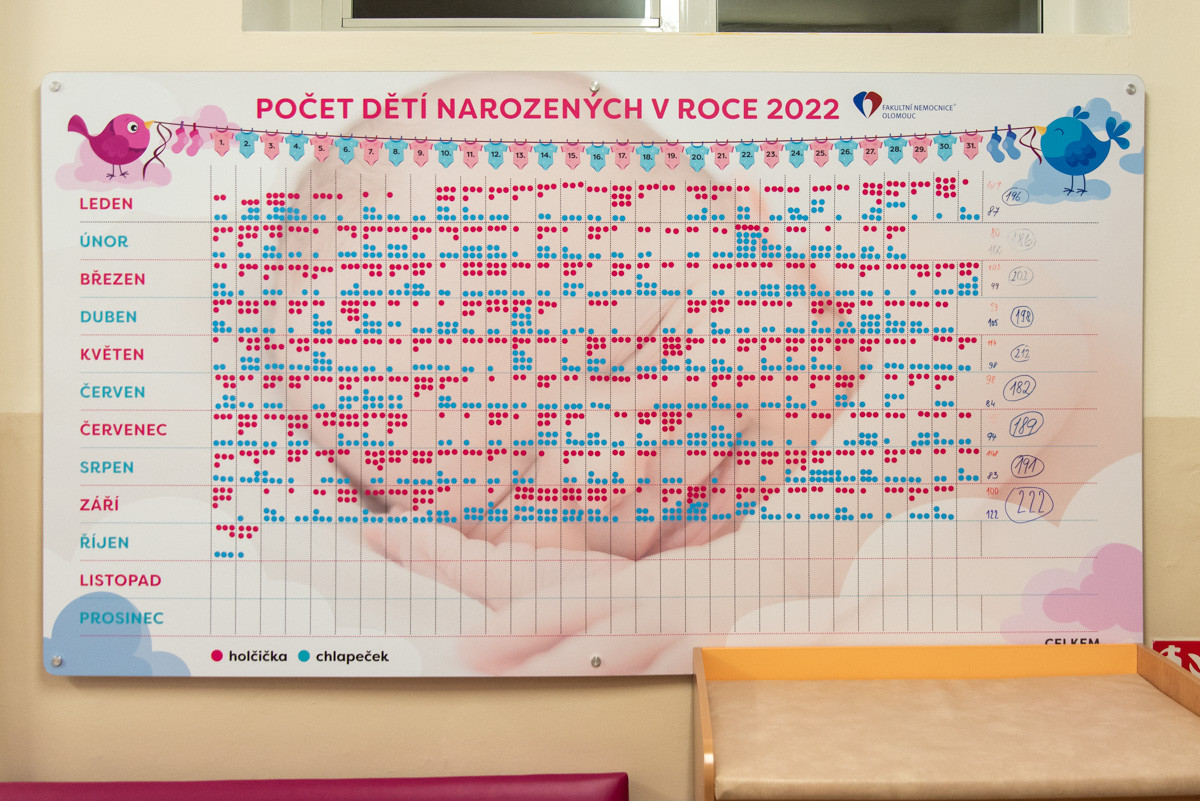 POČET DĚTÍ NAROZENÝCH V ROCE 2022
FAKULTNÍ NEMOCNICE
OLOMOUC
1. 2. 3. 4. 5. 6. 7. 8. 9. 10. 11. 12. 13. 14. 15. 16. 17. 18. 19. 20. 21. 22. 23. 24. 25. 26. 27. 28. 29. 30. 31.
LEDEN 196
87
ÚNOR 80 186
BŘEZEN 103 202
99
DUBEN 93 198
105
KVĚTEN 114 212
98
ČERVEN 98 182
84
ČERVENEC 189
94
SRPEN 108 191
83
ZÁŘÍ 100 222
122
ŘÍJEN
LISTOPAD
PROSINEC
CELKEM
holčička chlapeček